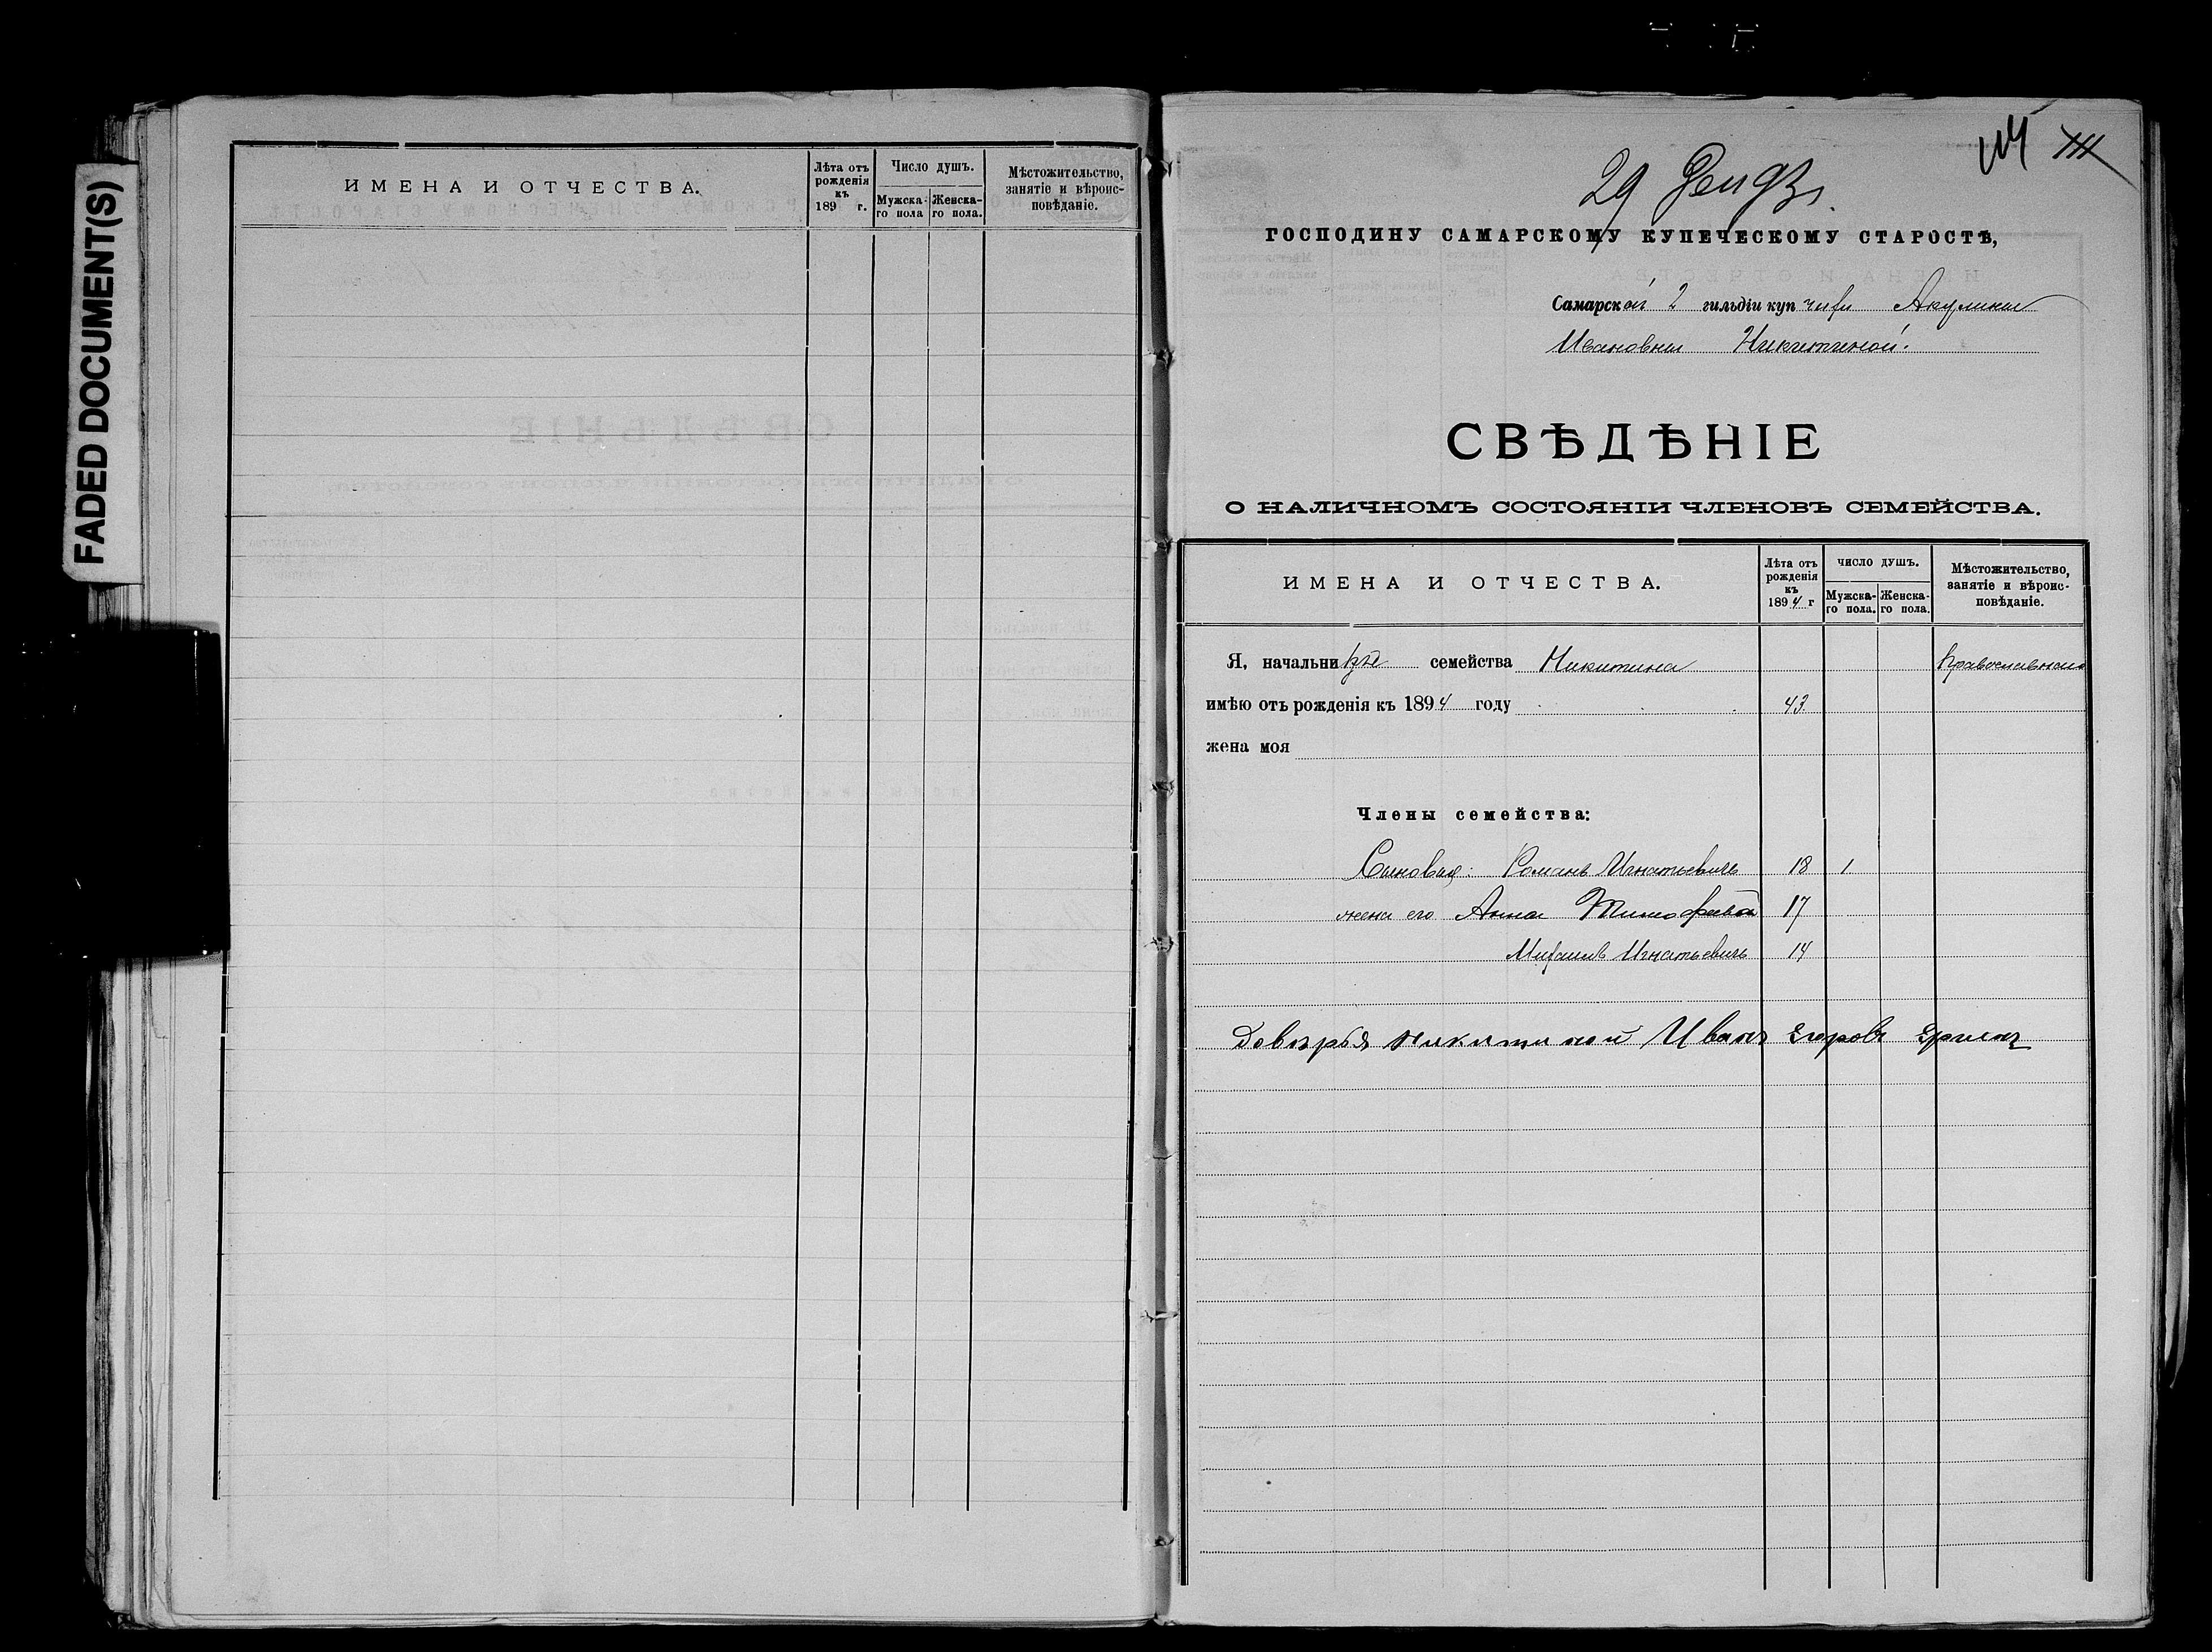 FADED DOCUMENT(S)
ИМЕНА И ОТЧЕСТВА.
Лѣта отъ рожденія къ 189 г.
Число душъ.
Мужска-го пола
Женска-го пола.
Мѣстожительство, занятіе и вѣроис-повѣданіе.
29
ГОСПОДИНУ САМАРСКОМУ КУПЕЧЕСКОМУ СТАРОСТѢ,
Самарской 2 гильдіи купчихи Акулины
Ивановны Никитиной.
СВѢДѢНІЕ
О НАЛИЧНОМЪ СОСТОЯНІИ ЧЛЕНОВЪ СЕМЕЙСТВА.
ИМЕНА И ОТЧЕСТВА.
Лѣта отъ рожденія къ 1894 г
ЧИСЛО ДУШЪ.
Мужска-го пола.
Женска-го пола.
Мѣстожительство, занятіе и вѣроис-повѣданіе.
Я, начальни семейства Никитина
имѣю отъ рожденія къ 1894 году 43
жена моя
Члены семейства:
Сыновья: Романъ Игнатьевичъ 18 1
жена его Анна Тимофеевна 17
Михаилъ Игнатьевичъ 14
Никитиной Иванъ Егоровъ